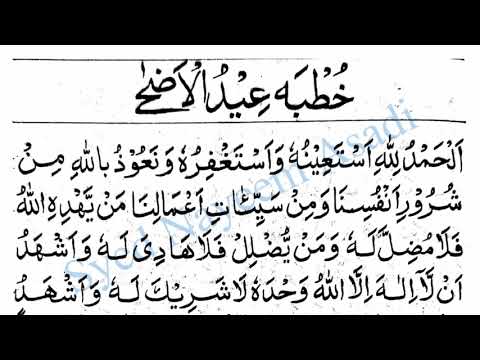 خُطْبَه عِيْدُ الْاَضْحٰى
اَلْحَمْدُ لِلّٰهِ اَسْتَعِيْنُهٗ وَاَسْتَغْفِرُهٗ وَنَعُوْذُ بِاللّٰهِ مِنْ
شُرُوْرِ اَنْفُسِنَا وَمِنْ سَيِّئَاتِ اَعْمَالِنَا مَنْ يَّهْدِهِ اللّٰهُ
فَلَا مُضِلَّ لَهٗ وَمَنْ يُّضْلِلْ فَلَا هَادِىَ لَهٗ وَاَشْهَدُ
اَنْ لَّاۤ اِلٰهَ اِلَّا اللّٰهُ وَحْدَهٗ لَا شَرِيْكَ لَهٗ وَاَشْهَدُ
Syed Nayeem Asadi